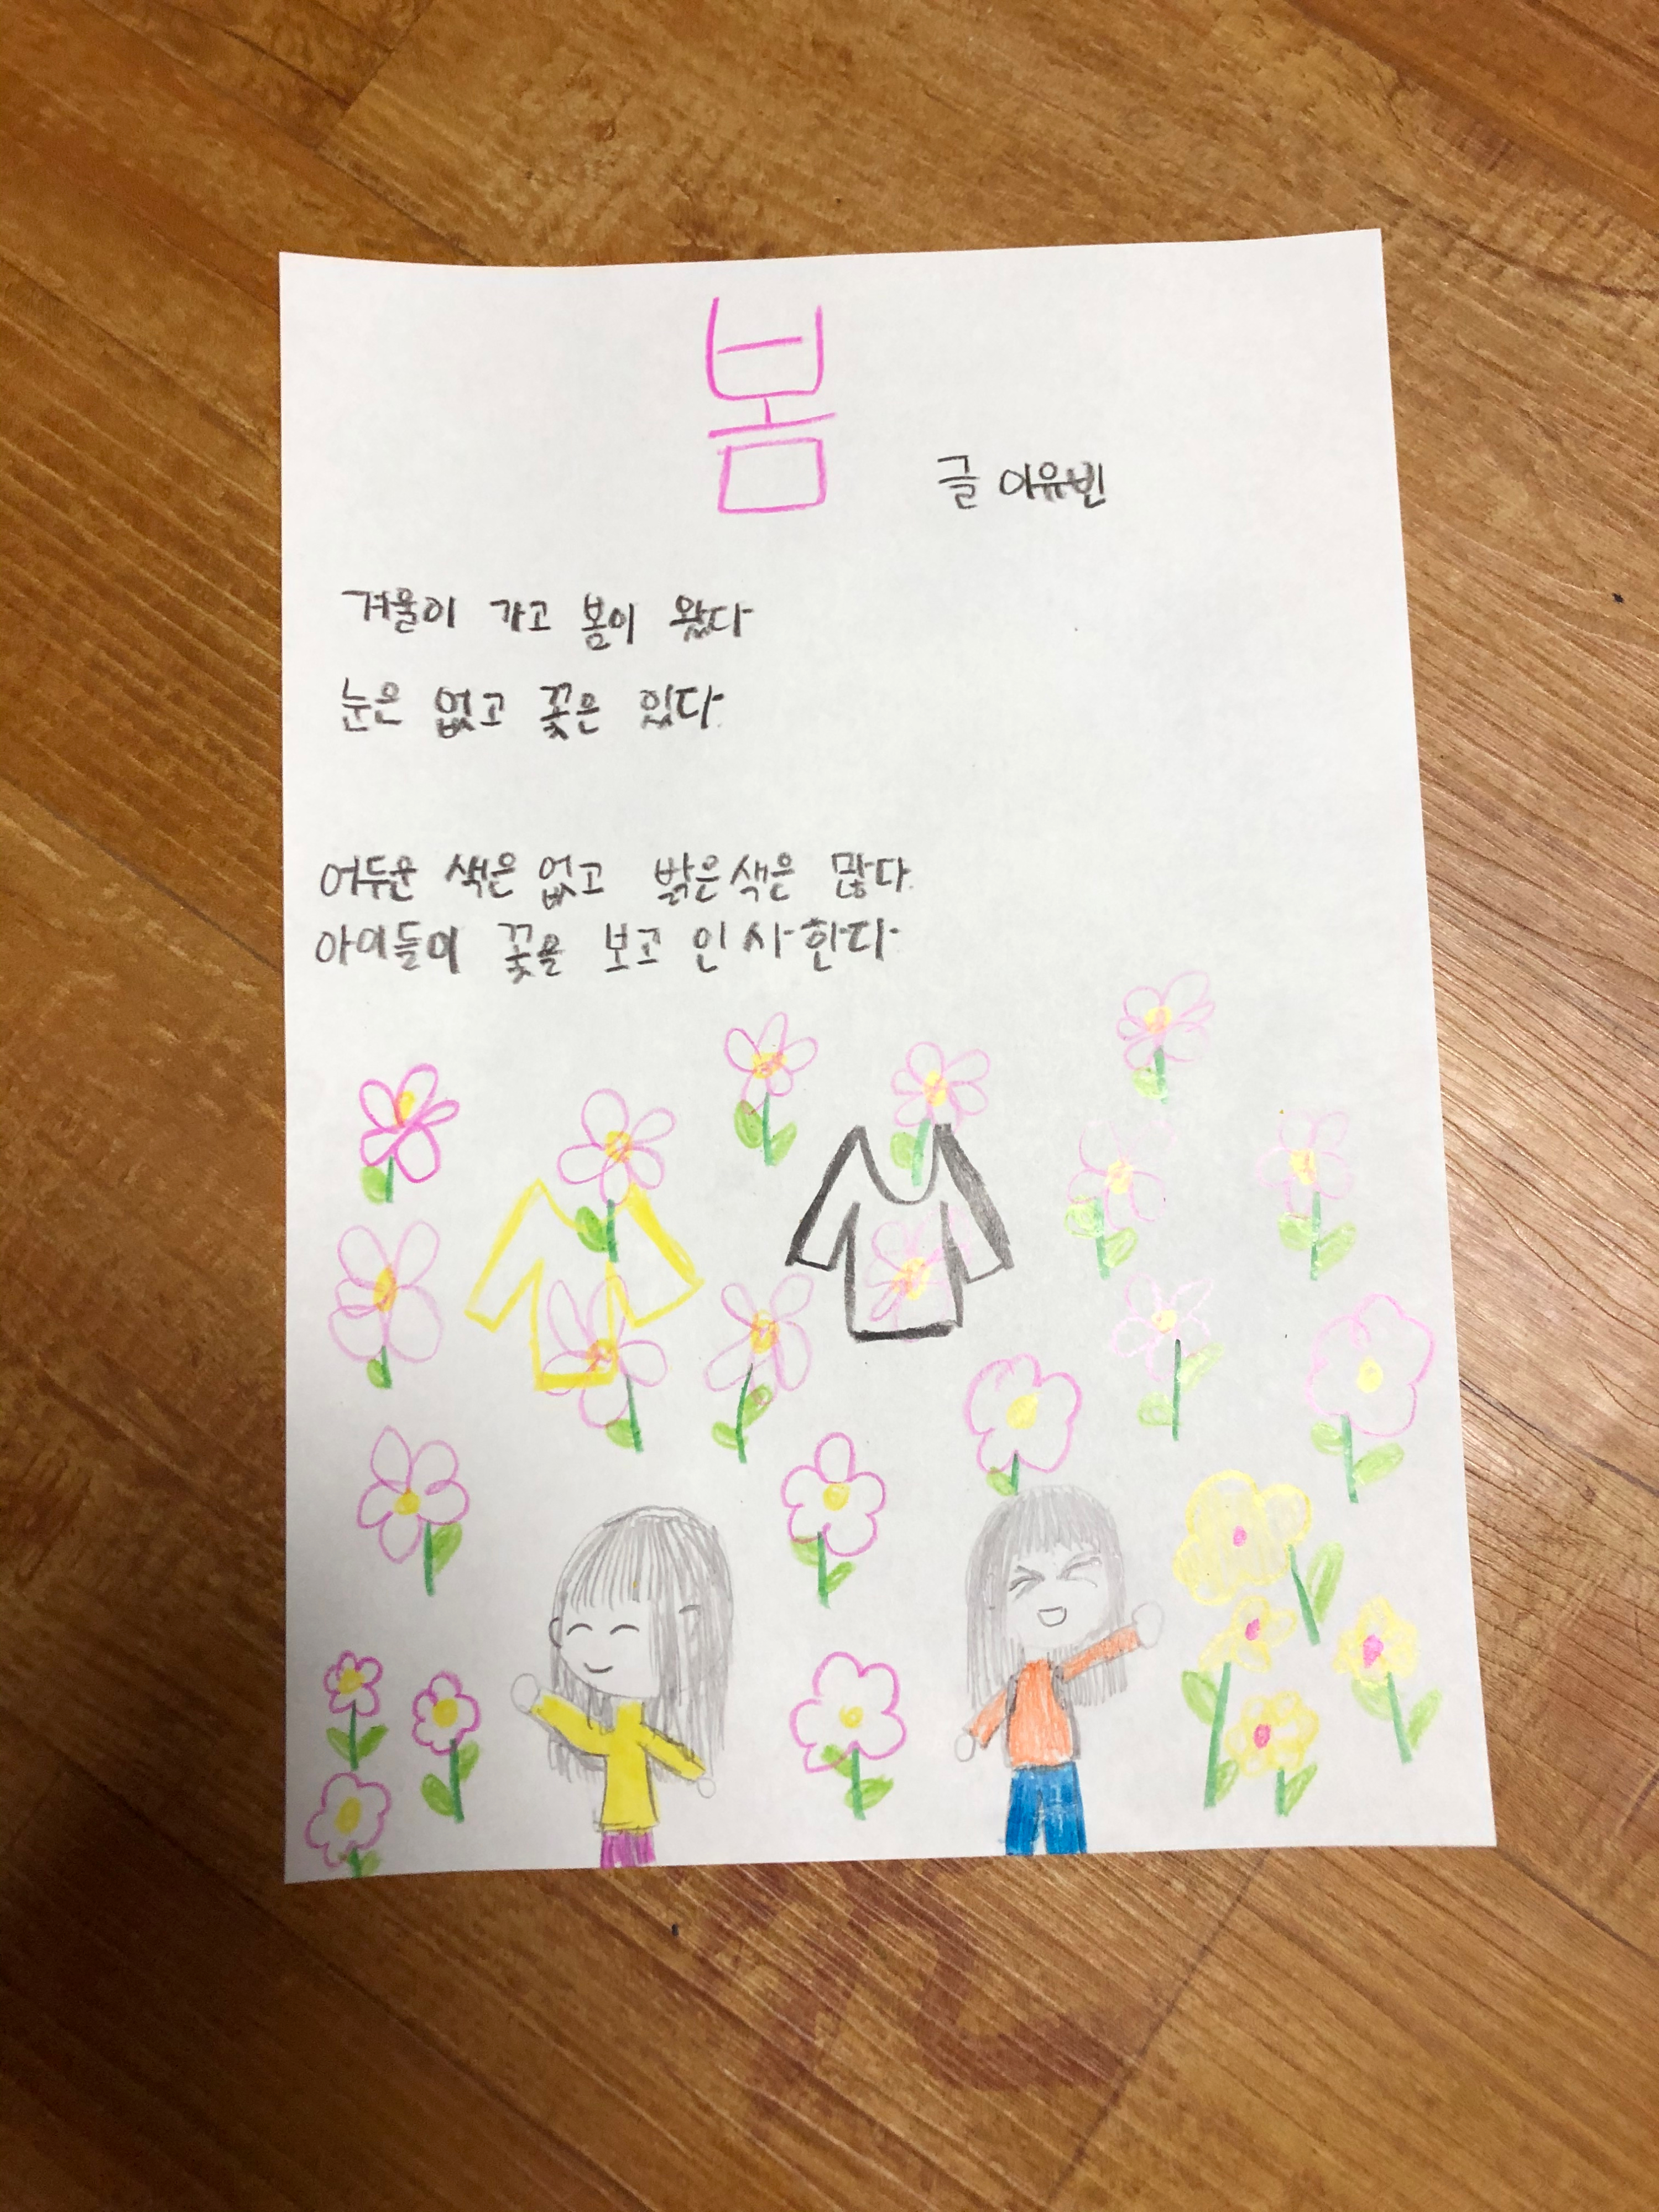 봄
글 이유빈
겨울이 가고 봄이 왔다
눈은 없고 꽃은 있다.
어두운 색은 없고 밝은색은 많다.
아이들이 꽃을 보고 인사한다